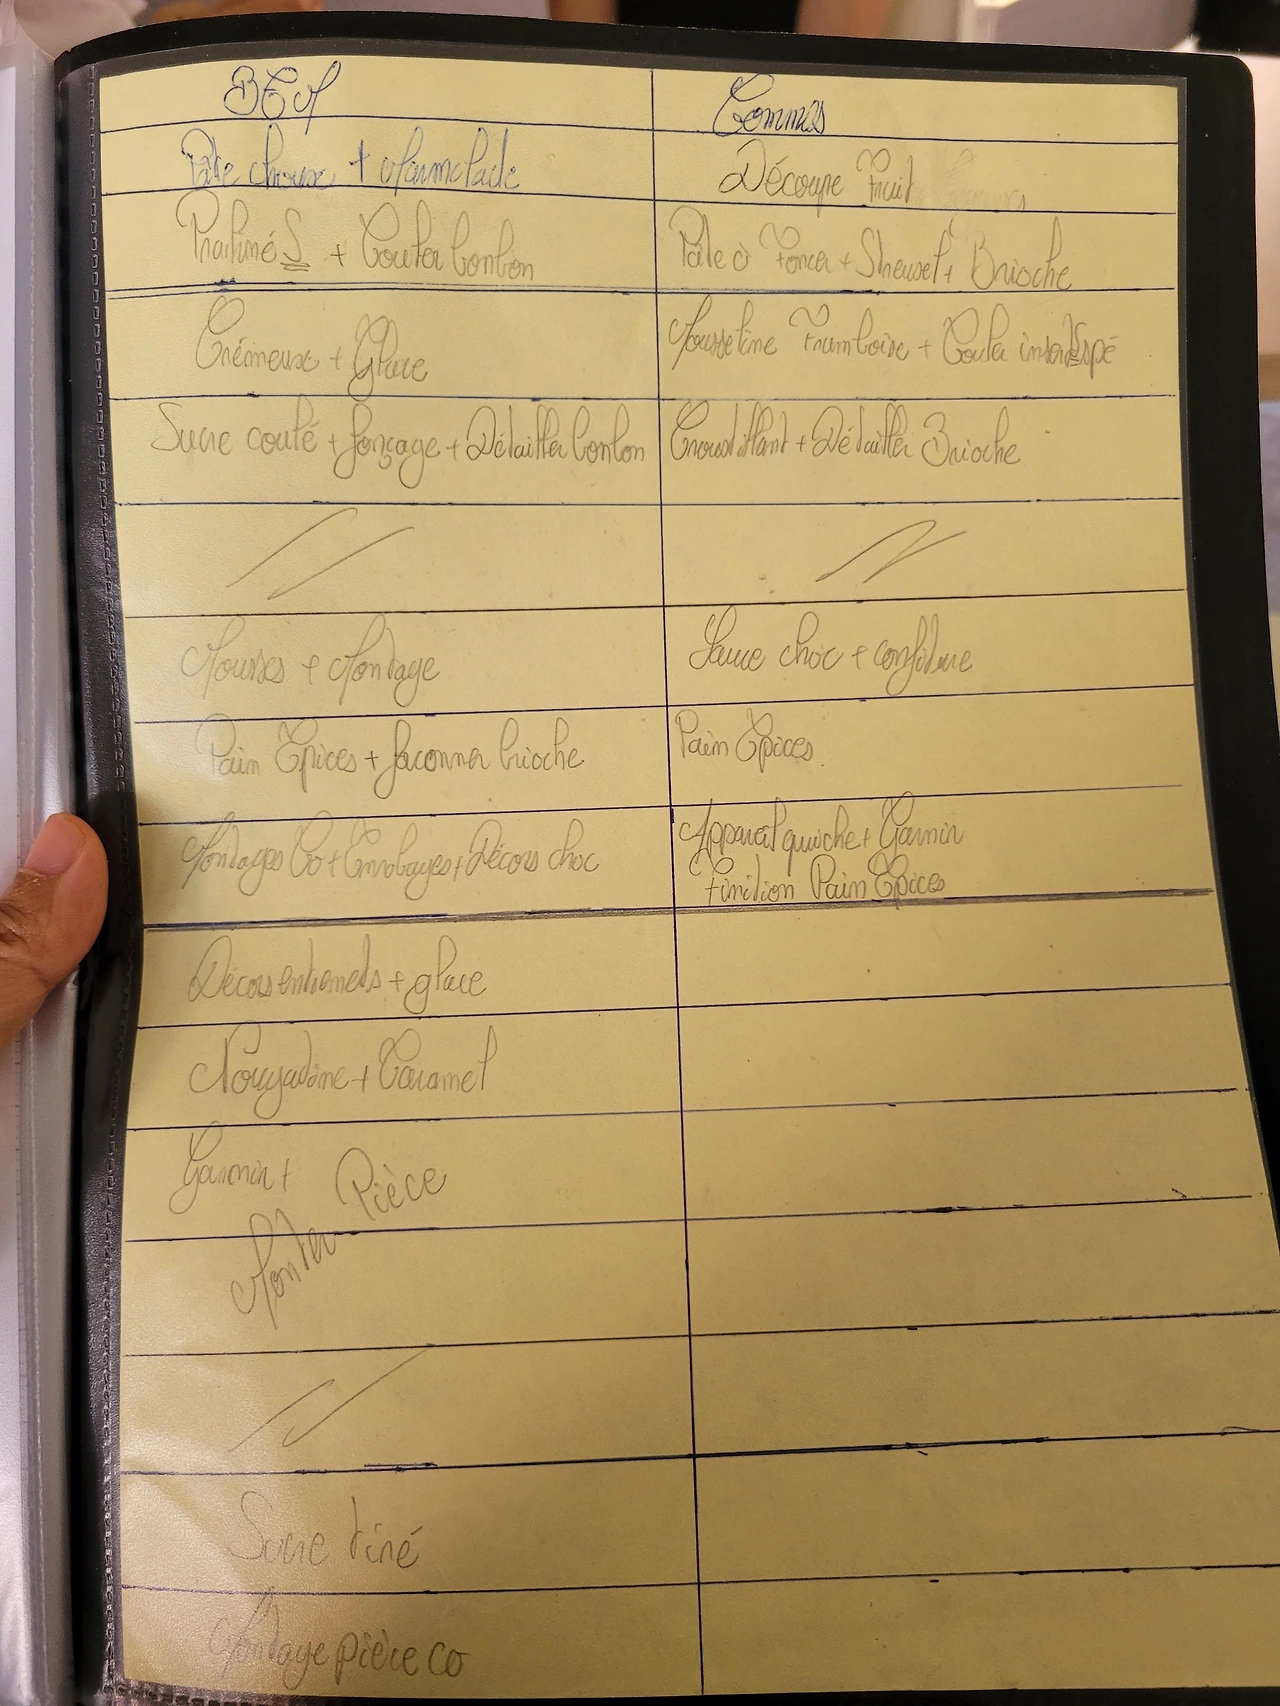 BTM
Commis
Pâte choux + Marmelade
Découpe Fruit
Praliné S + Couler bonbon
Pâte à Foncer + Streusel + Brioche
Crémeux + Glace
Mousseline Framboise + Couler insert
Sucre coulé + fonçage + Détailler bonbon
Croustillant + Détailler Brioche
Mousses + Montage
Sauce choc + confiture
Pain Épices + façonner brioche
Pain Épices
Montages Co + Enrobages + Décors choc
Appareil quiche + Garnir
Finition Pain Épices
Décors entremets + glace
Nougatine + Caramel
Garnir +
Monter Pièce
Sucre tiré
Montage pièce co